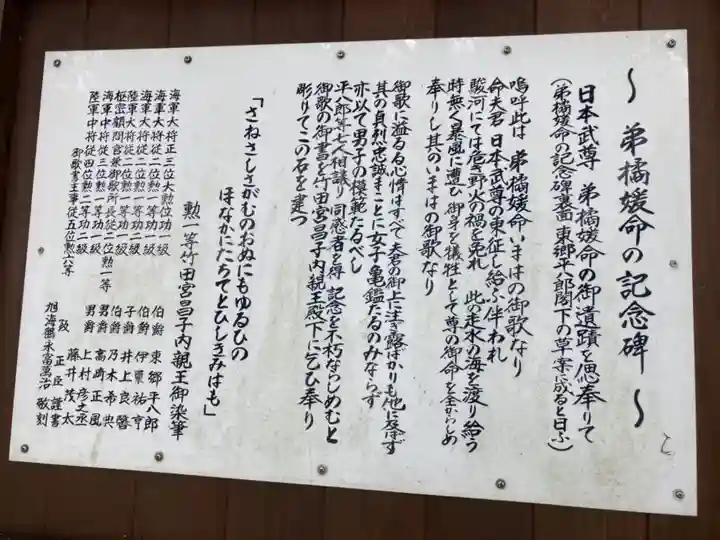 ～ 弟橘媛命の記念碑 ～
日本武尊 弟橘媛命の御遺蹟を偲奉りて
(弟橘媛命の記念碑裏面 東郷平八郎閣下の草案に成ると日ふ)
嗚呼此は 弟橘媛命いまはの御歌なり
命夫君 日本武尊の東征し給ふ伴われ
駿河にては危き野火の禍を免れ 此の走水の海を渡り給う
時無く暴風に遭ひ 御身を犠牲として尊の御命を全からしめ
奉りし其のいまはの御歌なり
御歌に溢るる心情はすべて夫君の御上に注ぎ露ばかりも他に及ばず
其の貞烈忠誠まことに女子亀鑑たるのみならず
亦以て男子の模範たるべし
平八郎等七人相議り同感者を得 記念を不朽ならしめむと
御歌の御書を竹田宮昌子内親王殿下に乞ひ奉り
彫りてこの石を建つ
「さねさしさがむのおぬにもゆるひの
ほなかにたちてとひしきみはも」
勲一等竹田宮昌子内親王御染筆
海軍大将正三位大勲位功一級 伯爵 東郷平八郎
海軍大将従二位勲一等功一級 伯爵 伊東祐亨
海軍大将従二位勲一等功二級 子爵 井上良馨
陸軍大将従二位勲一等功一級 伯爵 乃木希典
枢密顧問官兼御歌所長従二位勲一等 男爵 高崎正風
海軍中将従三位勲一等功一級 男爵 上村彦之丞
陸軍中将従四位勲二等功二級 藤井茂太
御歌書主事従五位勲六等 阪 正臣 謹書
旭海 永富萬治 敬刻